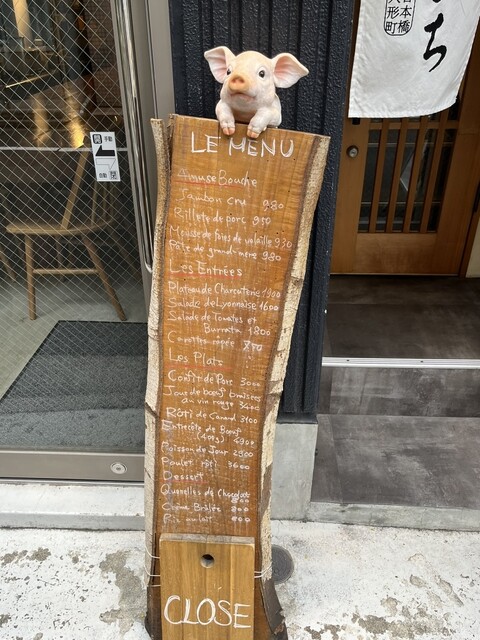 LE MENU
Amuse Bouche
Jambon cru 980
Rillete de porc 950
Mousse de foies de volaille 930
Pâte de grand-mere 980
Les Entrées
Plateau de Charcuterie 1900
Salade de Lyonnaise 1600
Salade de Tomates et
Burrata 1800
Carottes rapée 850
Les Plats
Confit de Porc 3000
Joue de bœuf braisées
au vin rouge 3400
Rôti de Canard 3100
Entrecôte de Bœuf
(400g) 4900
Poisson de Jour 2900
Poulet rôti 3600
Dessert
Quenelles de Chocolat
800
Crème Brûlée 800
Ris au lait 800
CLOSE
日本橋
人形町
ち
手動
自動